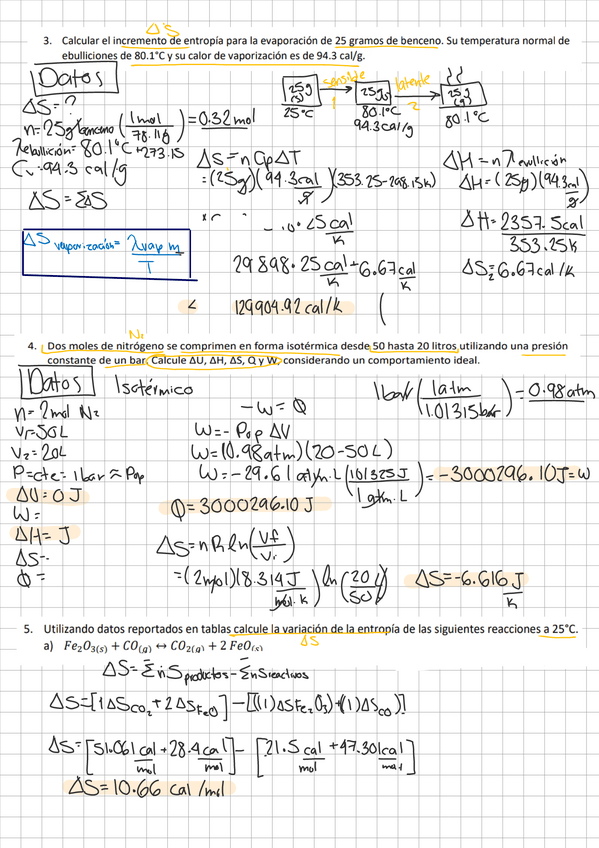 ΔS
3. Calcular el incremento de entropía para la evaporación de 25 gramos de benceno. Su temperatura normal de
ebulliciones de 80.1°C y su calor de vaporización es de 94.3 cal/g.
Datos
ΔS=?
n=25g benceno (1mol/78.11g)=0.32mol
λebullición= 80.1°C+273.15
Cv:94.3 cal/g
ΔS=ΣΔS
ΔS vaporización= λvap m/T
25g (s) 25°C
sensible 1
25g 80.1°C 94.3cal/g
latente 2
25g (g) 80.1°C
ΔS=nCpΔT
=(25g)(94.3cal/g)(353.25-298.15K)
25 cal/K
29898.25 cal/K+6.67cal/K
129904.92 cal/K
ΔH=nλebullición
ΔH=(25g)(94.3cal/g)
ΔH=2357.5cal
353.25K
ΔS2=6.67cal/K
N2
4. Dos moles de nitrógeno se comprimen en forma isotérmica desde 50 hasta 20 litros utilizando una presión
constante de un bar. Calcule ΔU, ΔH, ΔS, Q y W, considerando un comportamiento ideal.
Datos Isotérmico
n=2mol N2
V1=50L
V2=20L
P=cte=1bar≈Pop
ΔU=0J
W=
ΔH= J
ΔS=
Q=
-W=Q
W=-Pop ΔV
W=(0.98atm)(20-50L)
W=-29.61atm.L(101325J/1atm.L)=-3000296.10J=W
Q=3000296.10J
1bar(1atm/1.01315bar)=0.98atm
ΔS=nRln(Vf/Vi)
=(2mol)(8.314J/mol.K)ln(20L/50L) ΔS=-6.616J/K
5. Utilizando datos reportados en tablas calcule la variación de la entropía de las siguientes reacciones a 25°C.
ΔS
a) Fe2O3(s) + CO(g) ↔ CO2(g) + 2 FeO(s)
ΔS=ΣnSproductos-ΣnSreactivos
ΔS=[1ΔSCO2+2ΔSFeO]-[(1)ΔSFe2O3)+(1)ΔSCO)]
ΔS=[51.061cal/mol+28.4cal/mol]-[21.5cal/mol+47.301cal/mol]
ΔS=10.66 cal/mol